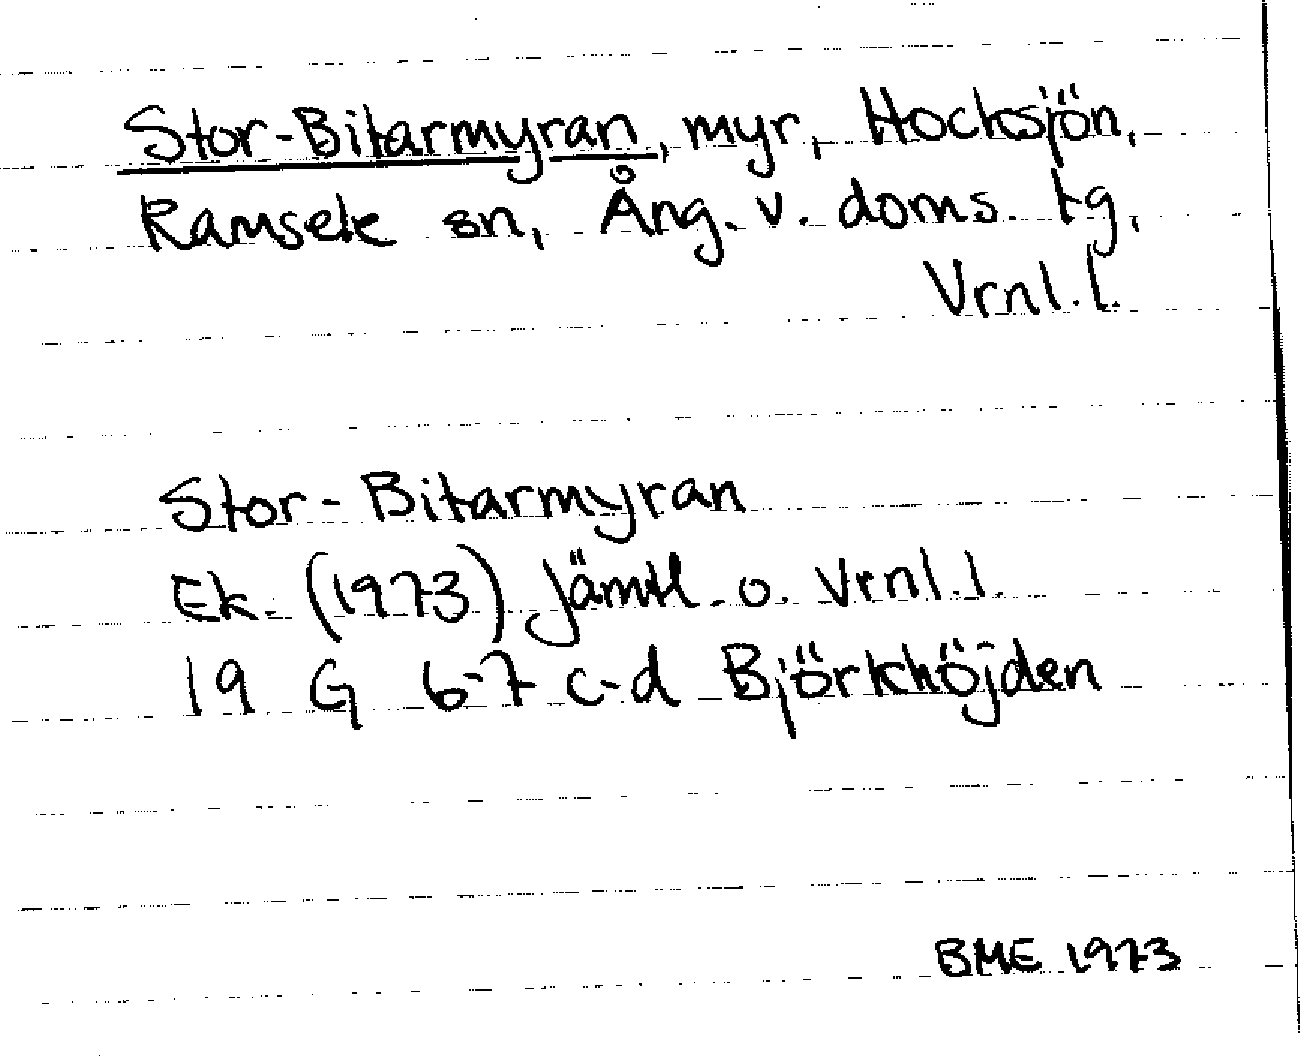 Stor-Bitarmyran, myr, Hocksjön,
Ramsele sn, Ång. v. doms. tg,
Vrnl. l.
Stor-Bitarmyran
Ek. (1973) Jämtl. o. Vrnl. l.
19 G 6-7 c-d Björkhöjden
BME 1973